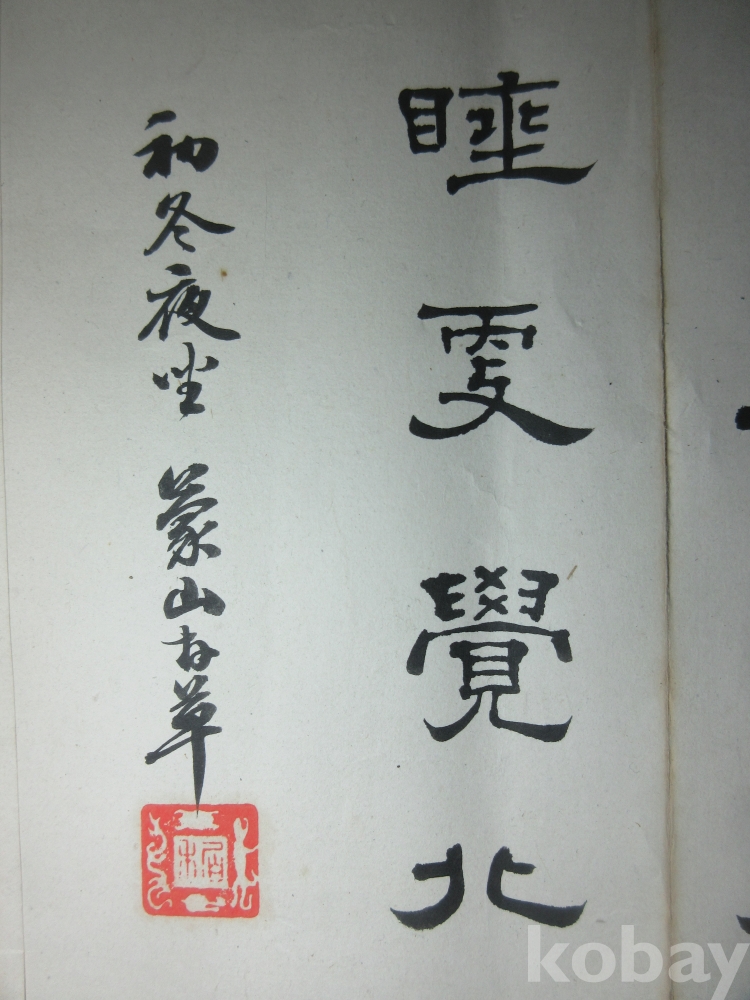 睡更覺北
初冬夜坐 蒙山草
kobay